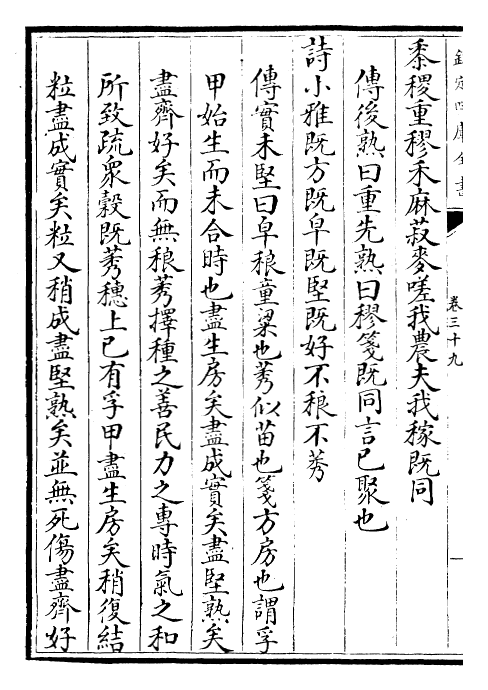 欽定四庫全書
卷三十九
黍稷重穋禾麻菽麥嗟我農夫我稼既同
傳後熟曰重先熟曰穋箋既同言已聚也
詩小雅既方既皁既堅既好不稂不莠
傳實未堅曰皁稂童粱也莠似苗也箋方房也謂孚
甲始生而未合時也盡生房矣盡成實矣盡堅熟矣
盡齊好矣而無稂莠擇種之善民力之專時氣之和
所致疏衆穀既莠穗上已有孚甲盡生房矣稍復結
粒盡成實矣粒又稍成盡堅熟矣並無死傷盡齊好